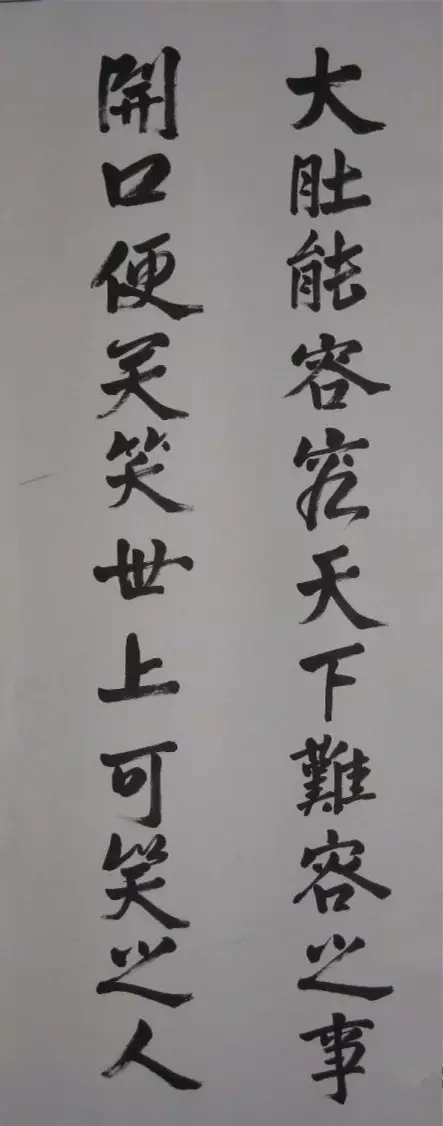 大肚能容容天下難容之事
開口便笑笑世上可笑之人